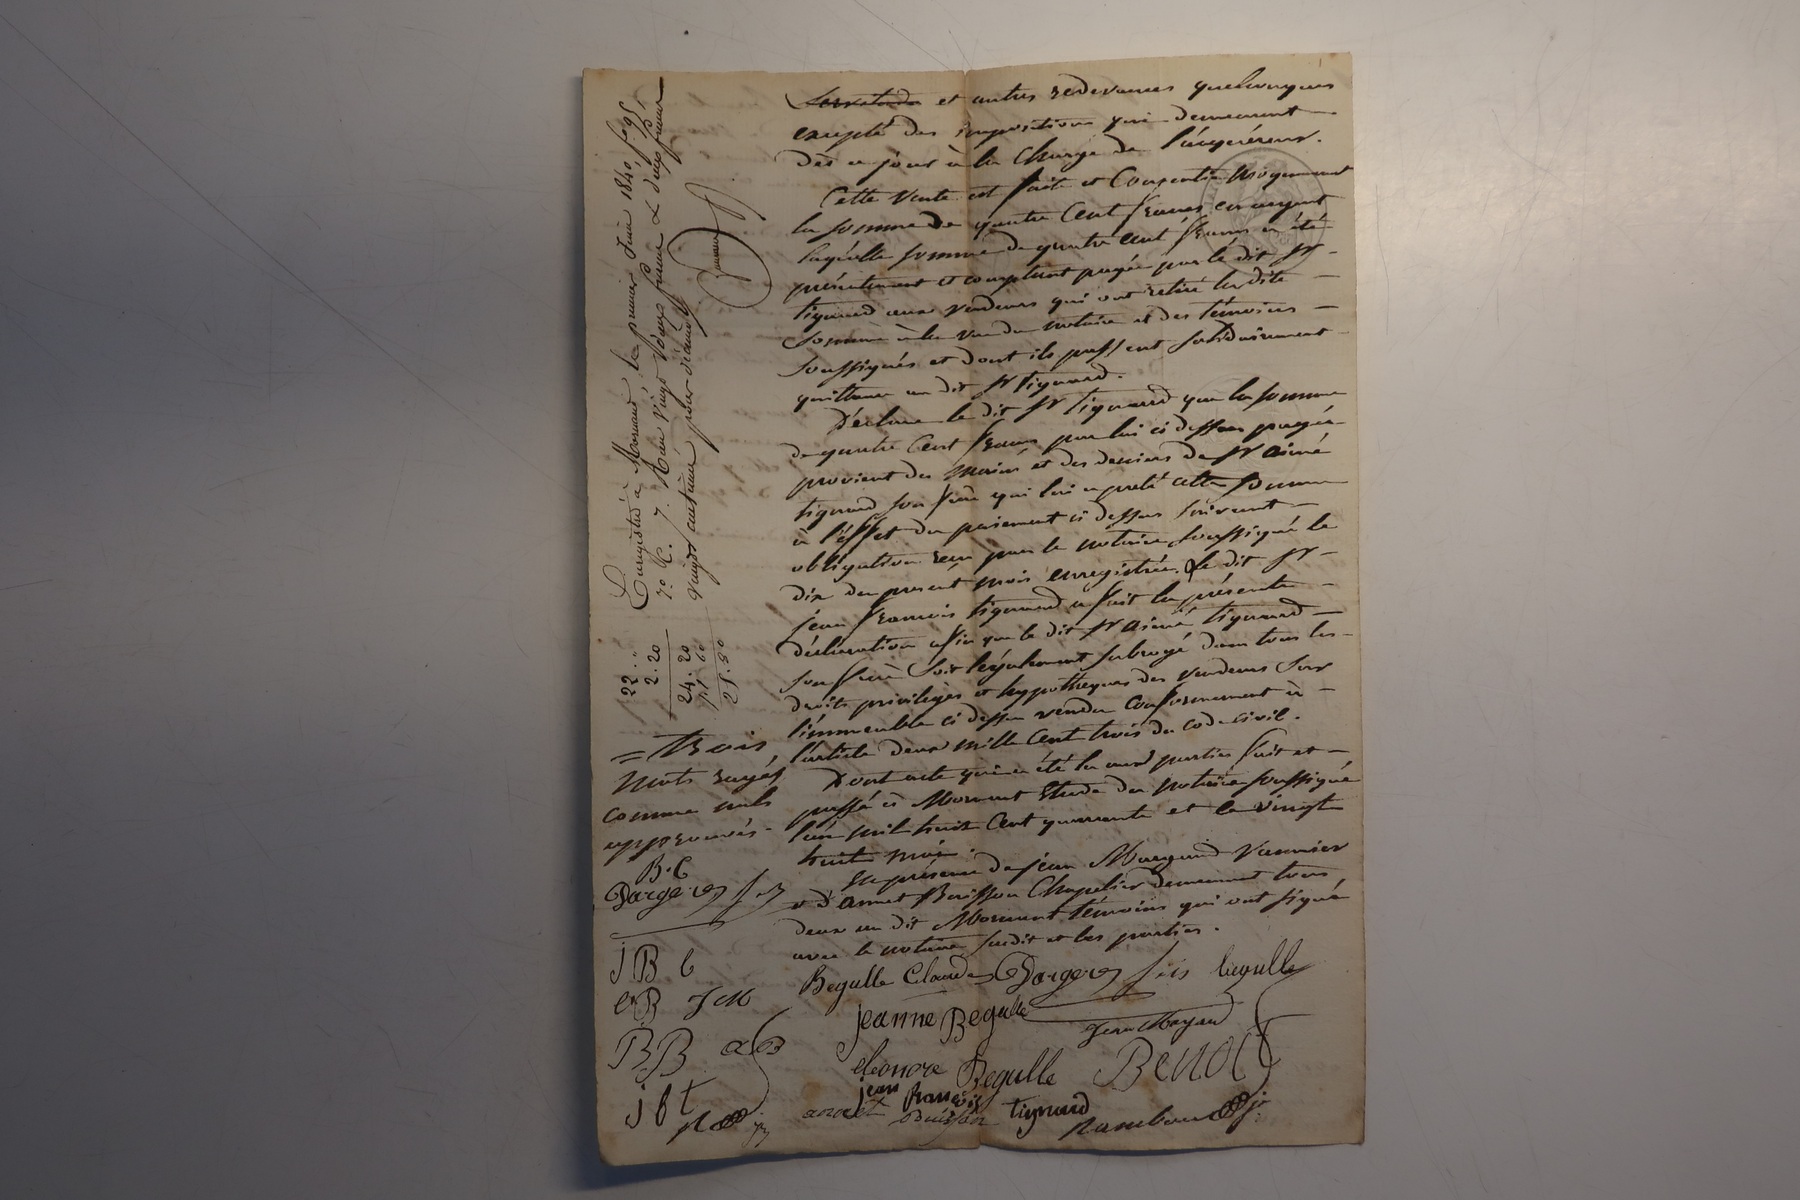 et autres redevances quelconques
excepté des impositions qui demeurent
dès ce jour à la charge de l'acquéreur.
Cette vente est faite et Consentie moyennant
la somme de quatre Cent francs en argent
laquelle somme de quatre cent francs a été
présentement et comptant payée par le dit sr
tignard aux vendeurs qui ont retiré la dite
somme à la vue du notaire et des témoins
soussignés et dont ils passent solidairement
quittance au dit sr tignard.
Déclare le dit sr tignard que la somme
de quatre Cent francs par lui ci dessus payée
provient des mains et des deniers de sr aimé
tignard son frère qui lui a preté cette somme
à l'effet du paiement ci dessus suivant
obligation reçu par le notaire soussigné le
dix du present mois enregistrée. Le dit sr
jean francois tignard a fait la présente
déclaration afin que le dit sr aimé tignard
son frère soit légalement subrogé dans tous les
droits privilèges et hypothèques des vendeurs sur
l'immeuble ci dessus vendu conformement à
l'article deux mille Cent trois du code civil.
Dont acte qui a été lu aux parties fait et
passé à Mornant Etude du notaire soussigné
l'an mil huit Cent quarante et le vingt
huit mai.
En présence de jean Vannier
et d'annet Buisson Chapelier demeurant tous
deux au dit Mornant témoins qui ont signé
avec le notaire susdit et les parties.
Begulle Claude Dargere fois begulle
jeanne Begulle
eleonore Begulle Benoit
jean francois tignard
annet Buisson
Enregistré à Mornant, le premier Juin 1840, fo 95,
Reçu vingt deux francs & deux francs
vingt centimes pour décime
22 "
2.20
24.20
25.90
= trois
mots rayés
comme nuls
approuvés.
B.C
Dargere
J B b
e B J M
B B a B
j f t